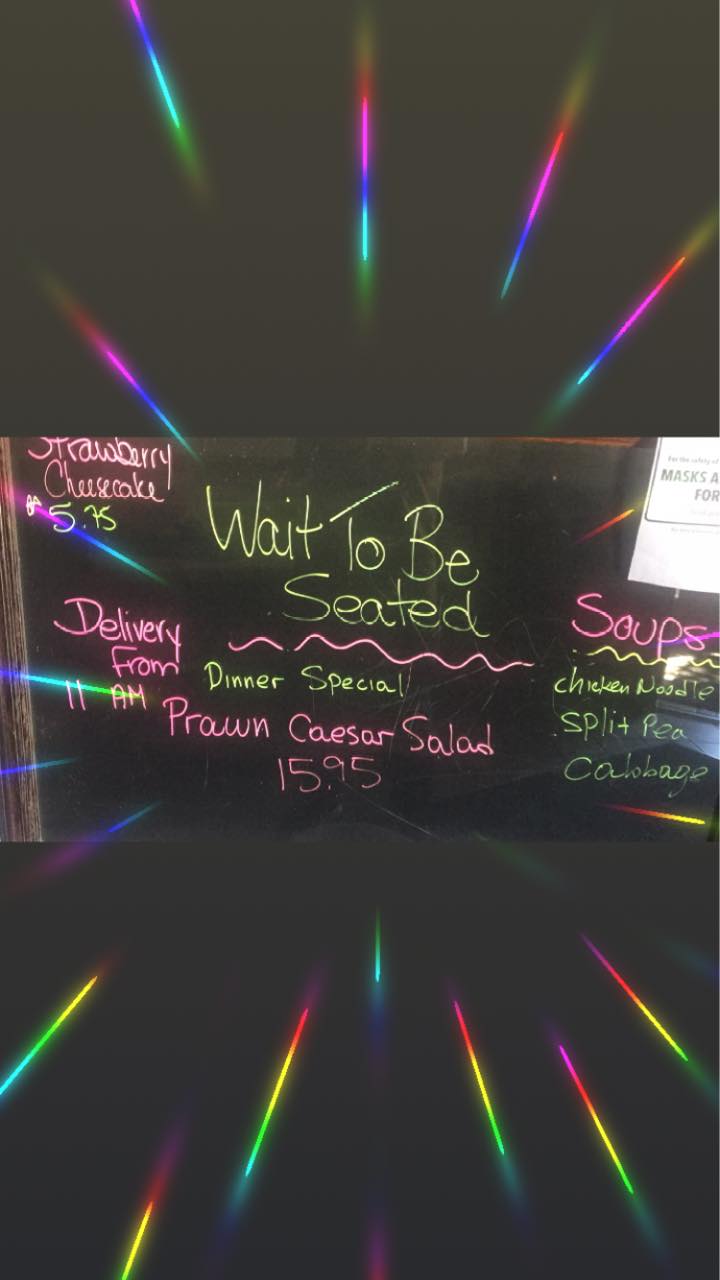 Strawberry
Cheesecake
$5.75
Wait To Be
Seated
Delivery
From
11 AM
Dinner Special
Prawn Caesar Salad
15.95
For the safety of
MASKS A
FOR
Soups
chicken Noodle
Split Pea
Cabbage